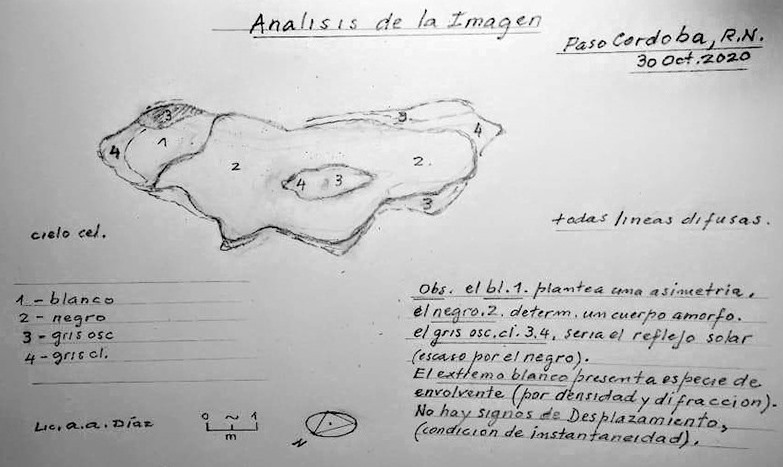 Analisis de la Imagen
Paso Cordoba, R.N.
30 Oct. 2020
3
4
1
2
4 3
2.
3
4
3
cielo cel.
todas lineas difusas.
1 - blanco
2 - negro
3 - gris osc
4 - gris cl.
Obs. el bl. 1. plantea una asimetria,
el negro. 2. determ. un cuerpo amorfo.
el gris osc. cl. 3.4, seria el reflejo solar
(escaso por el negro).
El extremo blanco presenta especie de
envolvente (por densidad y difraccion).
No hay signos de Desplazamiento,
(condición de instantaneidad).
Lic. a.a. Díaz
0 ~ 1
m
N